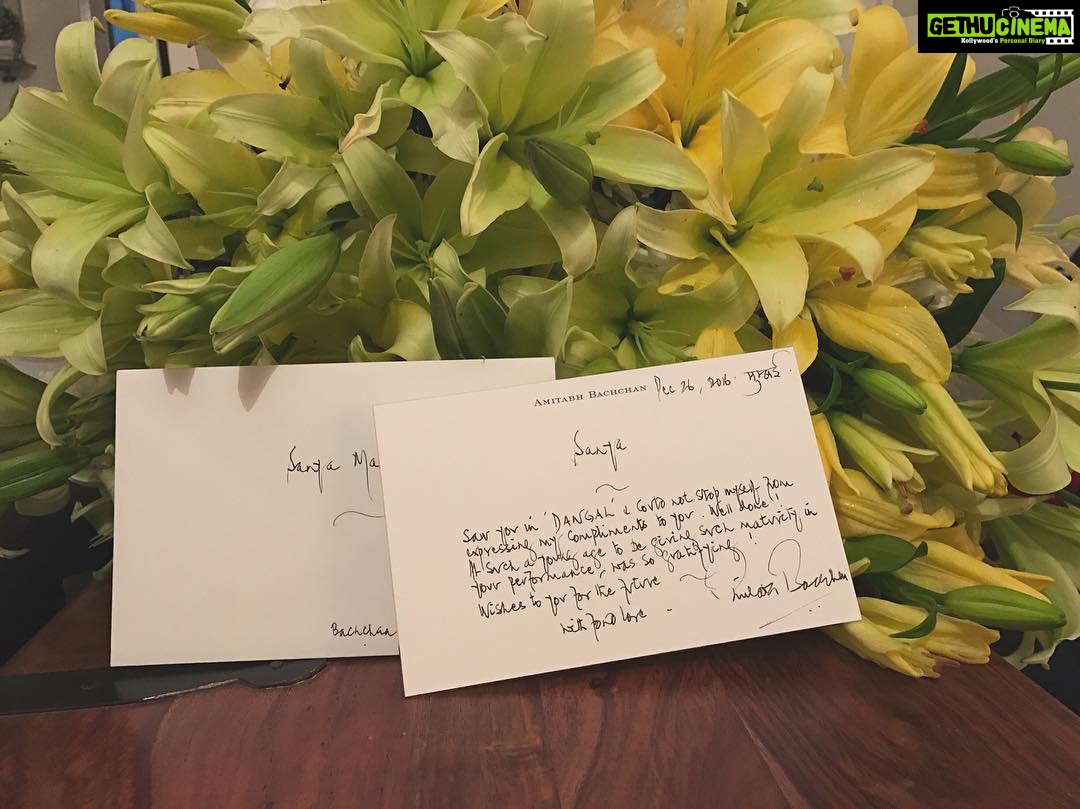 GETHUCINEMA
Kollywood's Personal Diary
AMITABH BACHCHAN Dec 26, 2016. मुम्बई.
Sanya
Saw you in 'DANGAL' & could not stop myself from
expressing my compliments to you. Well done!
At such a young age to be giving such maturity in
your performance, was so gratifying!
Wishes to you for the future
with fond love -
Amitabh Bachchan
Sanya Ma
Bachchan